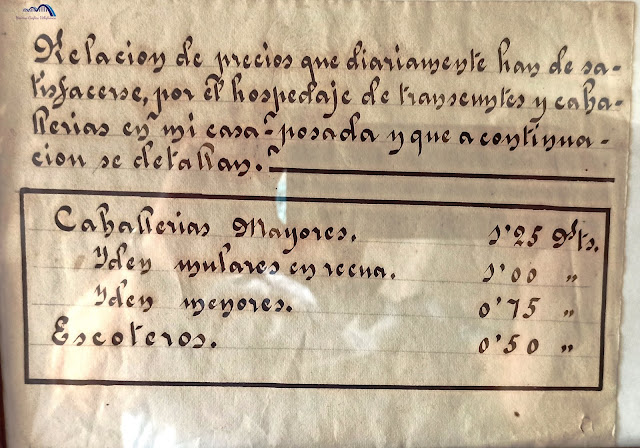 Relacion de precios que diariamente han de sa-
tisfacerse, por el hospedaje de transeuntes y caba-
llerias en mi casa-posada y que a continua-
cion se detallan.
Caballerias Mayores. 1'25 Pts.
Yden mulares en recua. 1'00 "
Yden menores. 0'75 "
Escoteros. 0'50 "